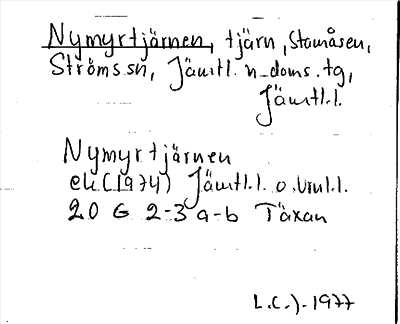 Nymyrtjärnen, tjärn, Stamåsen,
Ströms sn, Jämtl. n. doms. tg,
Jämtl.l.
Nymyrtjärnen
ek (1974) Jämtl.l. o. Vnl.l.
20 G 2-3 a-b Täxan
L.C.J. 1977